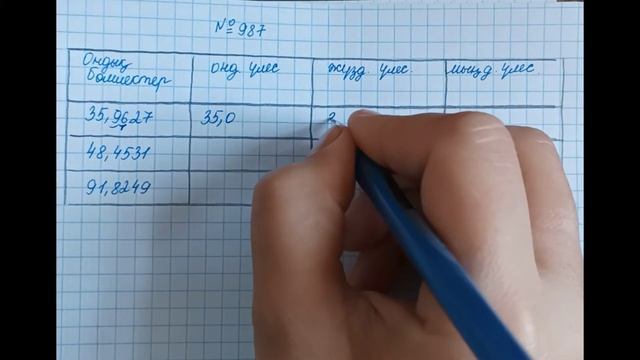 № 987
Ондық бөлшектер онд. үлес жүзд. үлес. мыңд. үлес.
35,9627 35,0 3
48,4531
91,8249